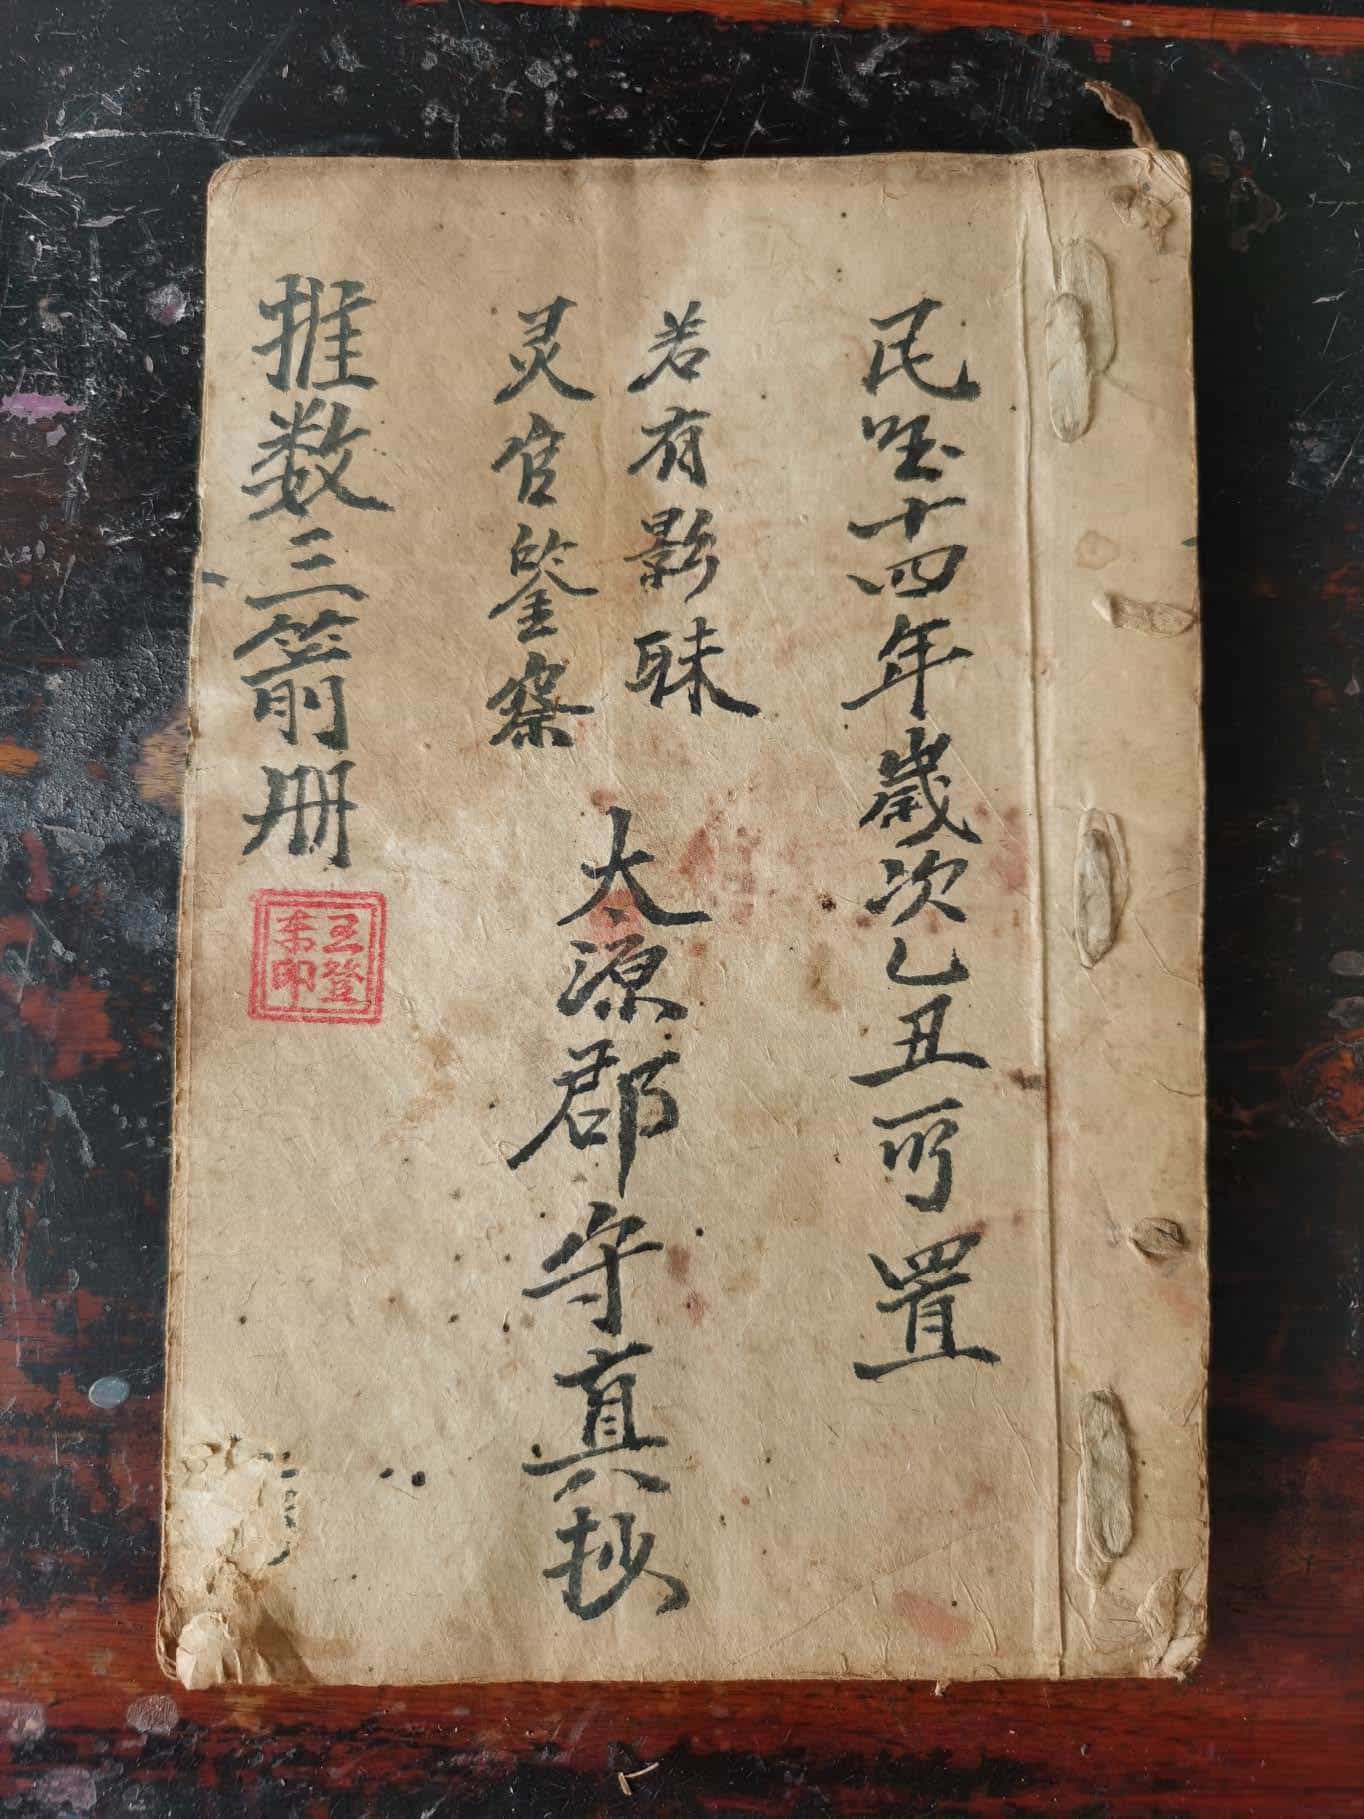 民囯十四年歲次乙丑所置
若有影眛
灵官鉴察
太源郡守真抄
推数三箭册
王登
来印